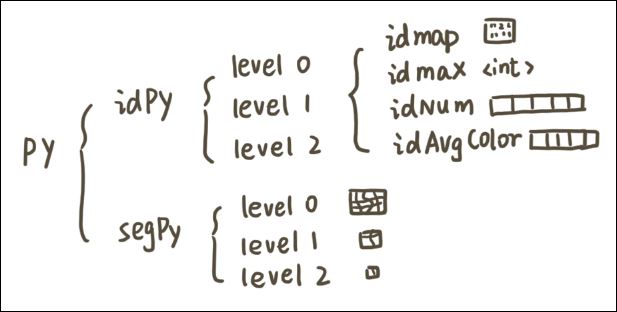 PY
idPy
level 0
level 1
level 2
idmap
idmax <int>
idNum
idAvgColor
segPy
level 0
level 1
level 2